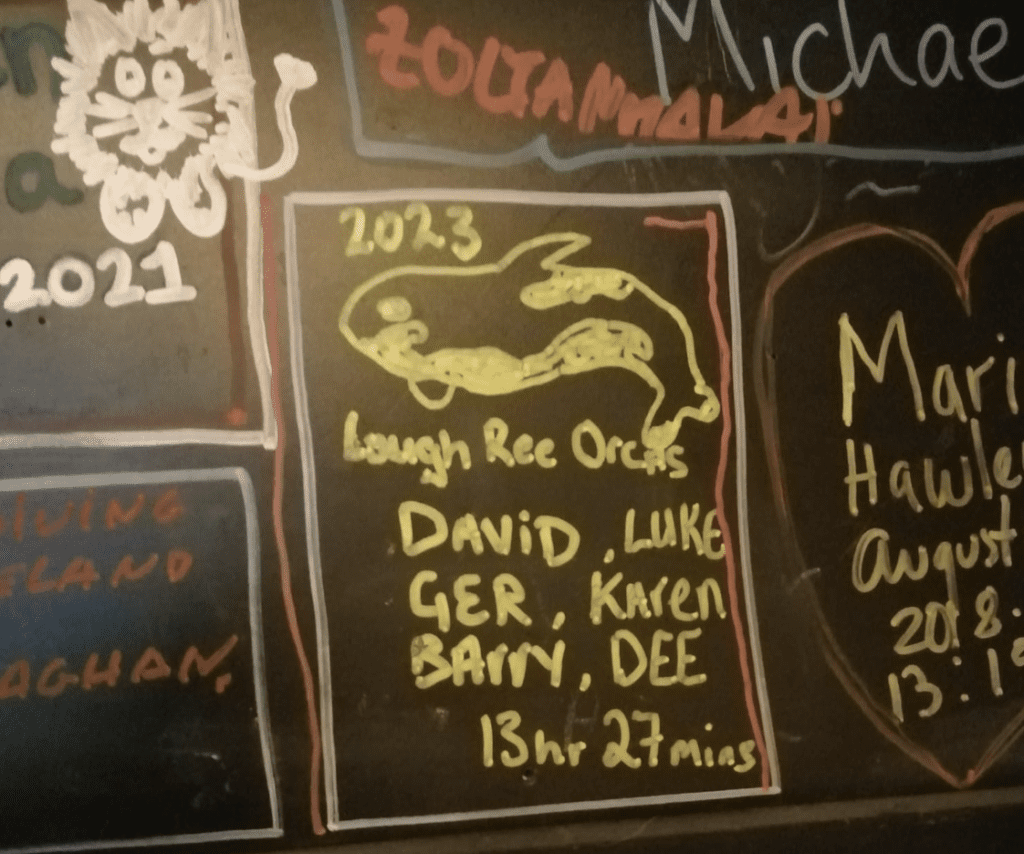 ZOLTAN HALASI
Michae
2021
2023
Lough Ree Orcas
DAVID, LUKE
GER, Karen
BArry, DEE
13hr 27mins
IVING
ELAND
AGHAN.
Mari
Hawle
August
2018.
13:1